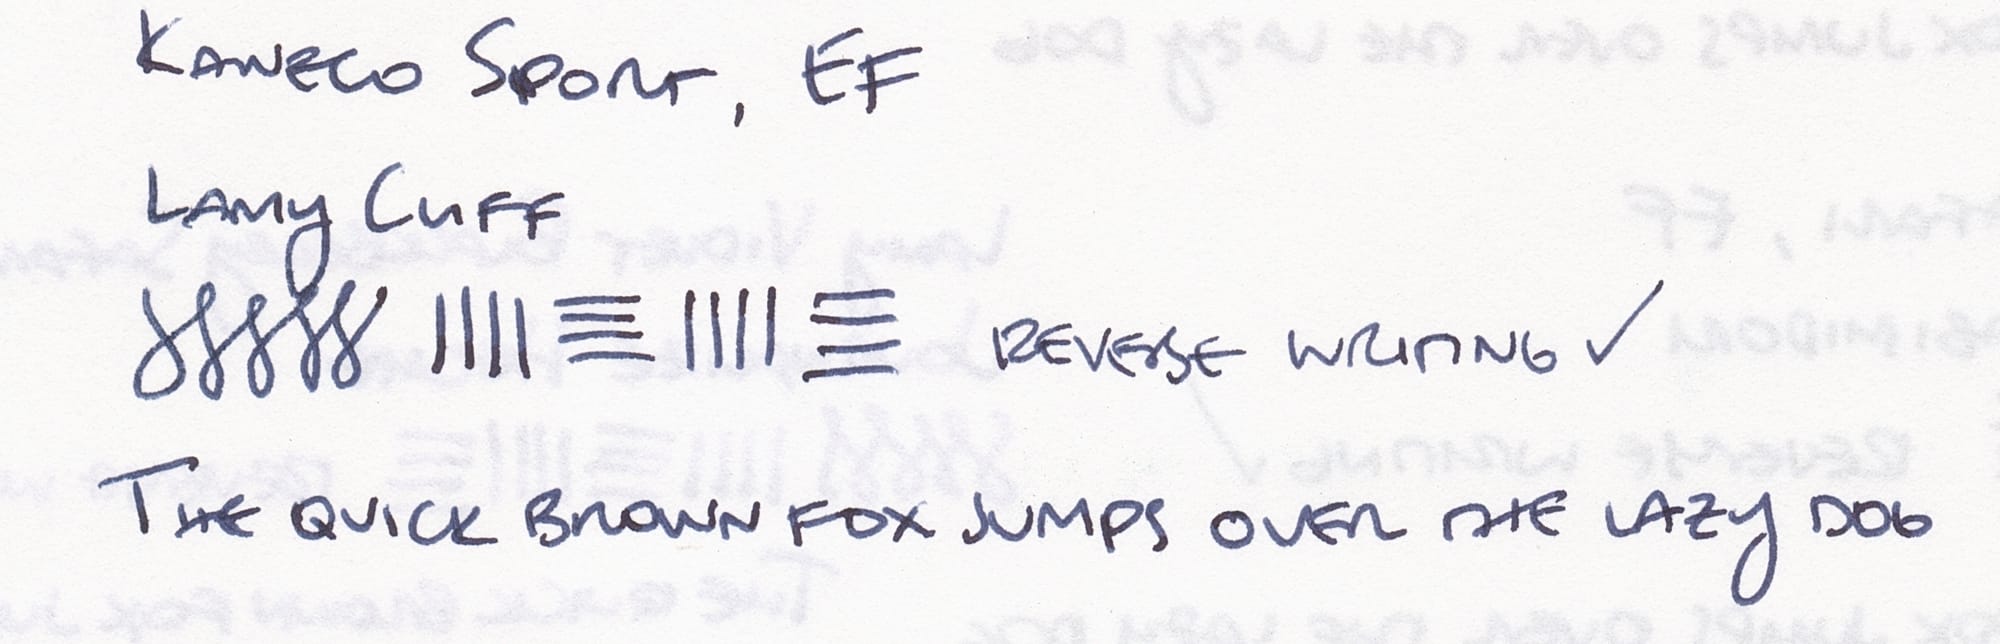 KAWECO SPORT, EF
LAMY CLIFF
REVERSE WRITING ✓
THE QUICK BROWN FOX JUMPS OVER THE LAZY DOG